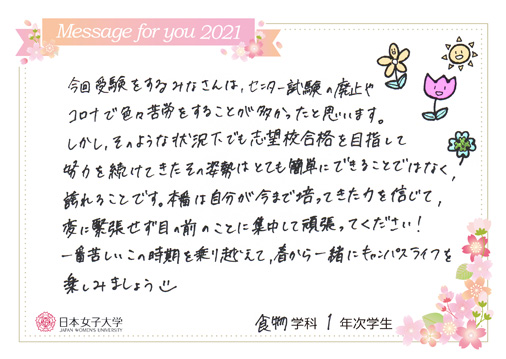 Message for you 2021
今回受験をするみなさんは、センター試験の廃止や
コロナで色々苦労をすることが多かったと思います。
しかし、そのような状況下でも志望校合格を目指して
努力を続けてきたその姿勢はとても簡単にできることではなく、
誇れることです。本番は自分が今まで培ってきた力を信じて、
変に緊張せず目の前のことに集中して頑張ってください！
一番苦しいこの時期を乗り越えて、春から一緒にキャンパスライフを
楽しみましょう
日本女子大学
JAPAN WOMEN'S UNIVERSITY
食物学科 1 年次学生